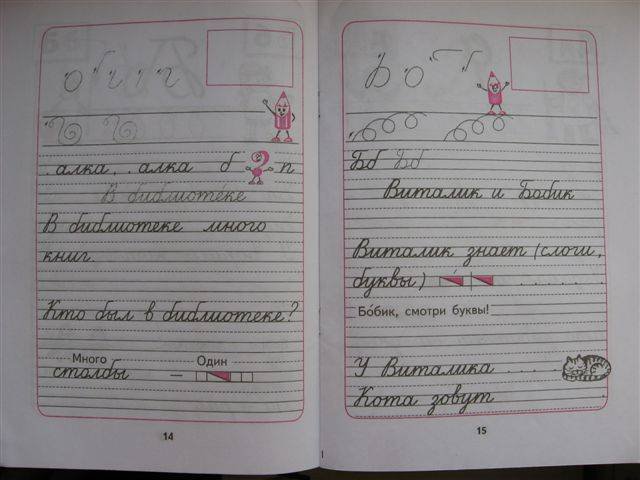 .алка, .алка б ? п
В библиотеке
В библиотеке много
книг.
Кто был в библиотеке?
Много Один
столбы —
14
Б О
Бб Бб
Виталик и Бобик
Виталик знает (слоги,
буквы) . . . . . .
Бобик, смотри буквы!
У Виталика . . . .
Кота зовут .
15